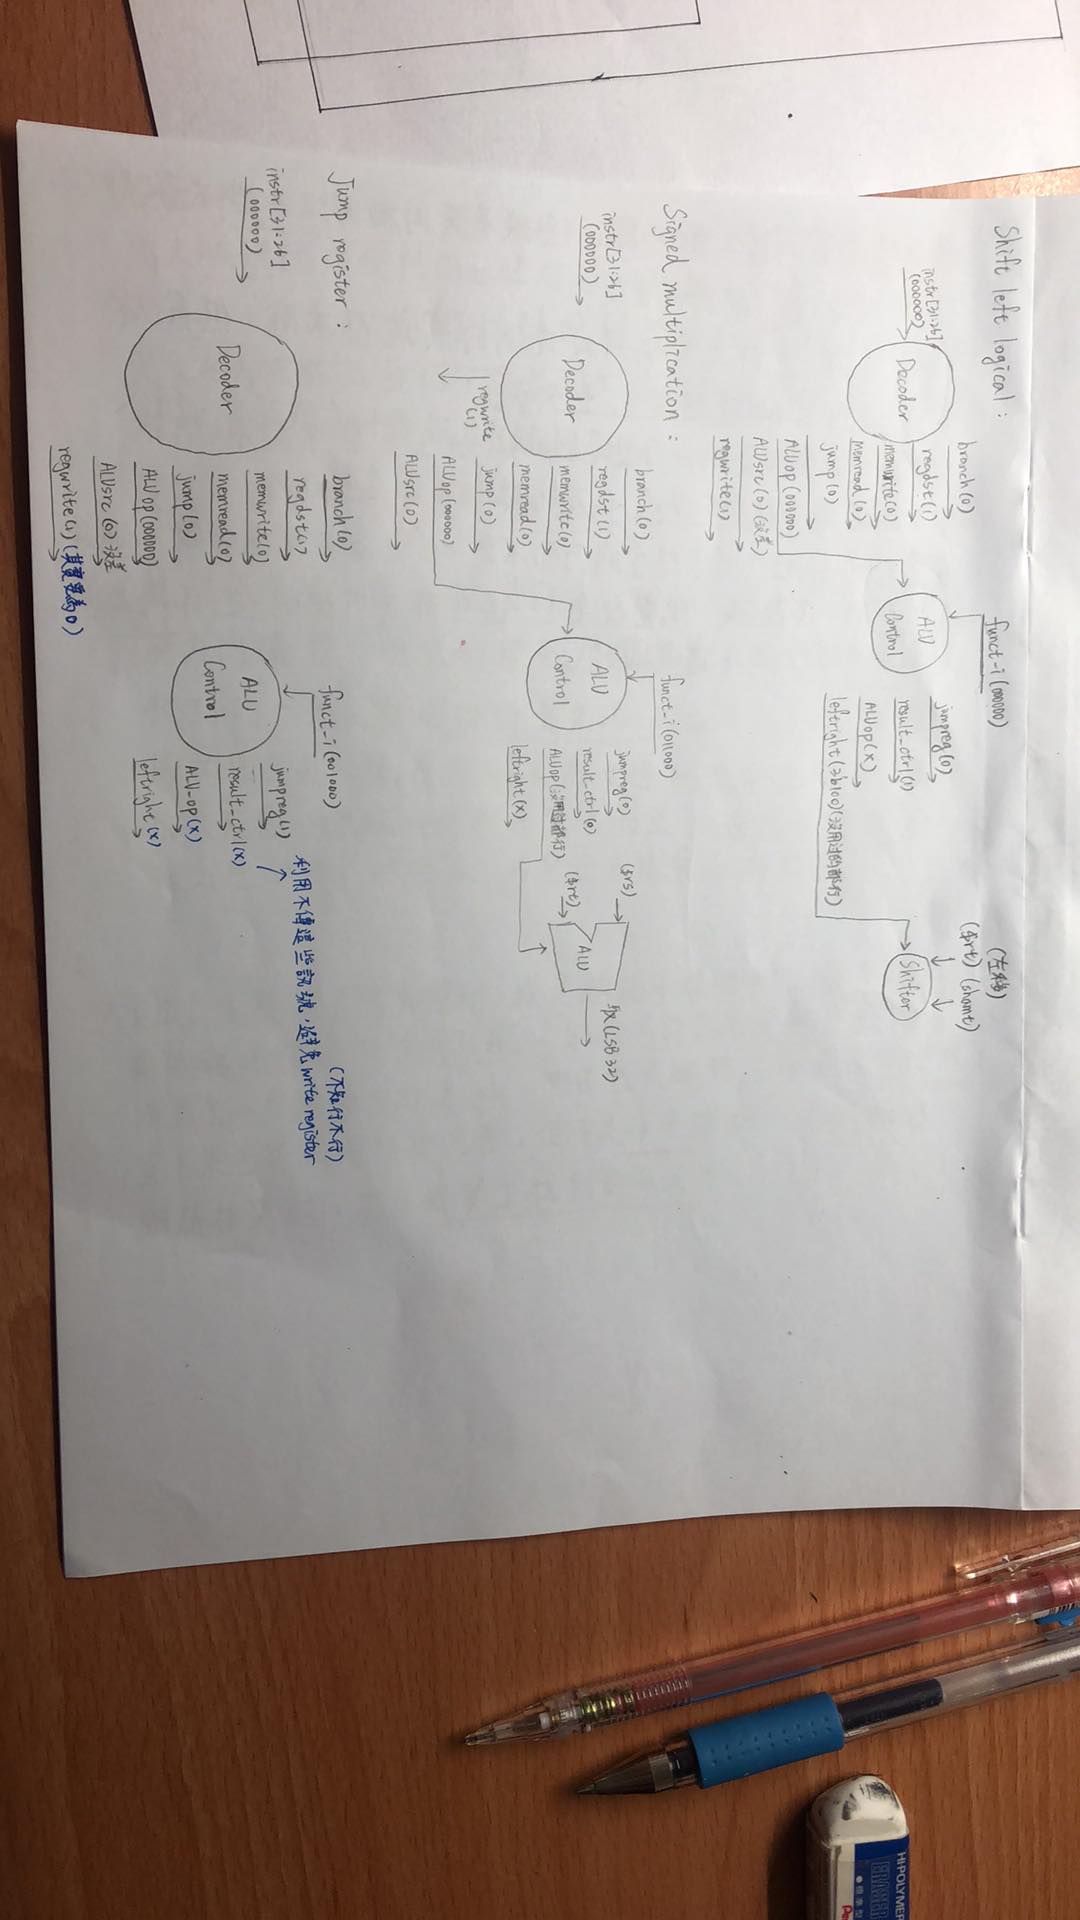 Shift left logical :
instr[31:26]
(000000)
Decoder
branch(0)
regdst(1)
memwrite(0)
memread(0)
jump(0)
ALUop(000000)
ALUsrc(0)(沒差)
regwrite(1)
funct-i(000000)
ALU
Control
jumpreg(0)
result_ctrl(1)
ALUop(x)
leftright(3b100)(沒用过的都行)
(左移)
($rt) (shamt)
Shifter
Signed multiplication :
instr[31:26]
(000000)
Decoder
regwrite
(1)
branch(0)
regdst(1)
memwrite(0)
memread(0)
jump(0)
ALUop(000000)
ALUsrc(0)
funct-i(011000)
ALU
Control
jumpreg(0)
result_ctrl(0)
ALUop(沒用过都行)
leftright(x)
($rs)
($rt)
ALU
取(LSB 32)
Jump register :
instr[31:26]
(000000)
Decoder
branch(0)
regdst(1)
memwrite(0)
memread(0)
jump(0)
ALUop(000000)
ALUsrc(0) 沒差
regwrite(1)(其實要為0)
funct-i(001000)
ALU
Control
jumpreg(1)
result_ctrl(x)
ALU-op(x)
leftright(x)
(不知行不行)
利用不傳這些訊號,避免write register
HI-POLYMER
ERASER